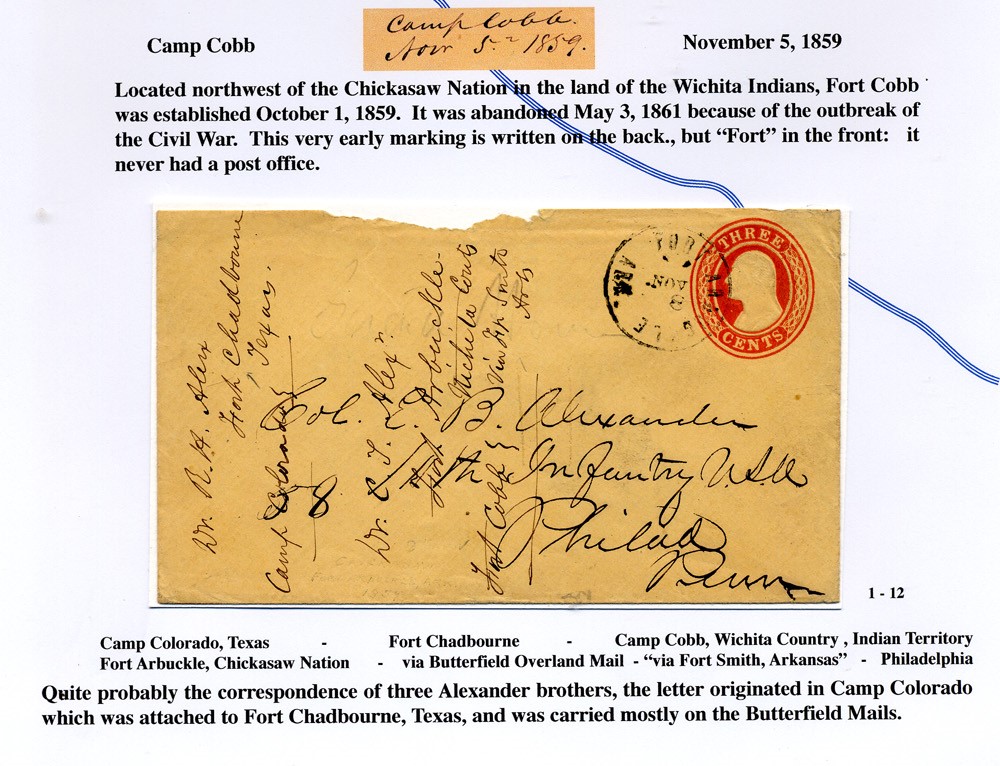 Camp Cobb
Camp Cobb.
Nov 5th 1859.
November 5, 1859
Located northwest of the Chickasaw Nation in the land of the Wichita Indians, Fort Cobb
was established October 1, 1859.  It was abandoned May 3, 1861 because of the outbreak of
the Civil War.  This very early marking is written on the back., but “Fort” in the front:  it
never had a post office.
Dr. R. H. Alex
Fort Chadbourne
Texas.
Camp Colorado
Dr. C. T. Alexr.
Fort Arbuckle
Wichita
Via Ft. Smith
Fort Cobb
THREE
CENTS
ARK.
NOV
8
Col. E. B. Alexander
10th Infantry U.S.A
Philad
Penn
1 - 12
Camp Colorado, Texas - Fort Chadbourne - Camp Cobb, Wichita Country , Indian Territory
Fort Arbuckle, Chickasaw Nation - via Butterfield Overland Mail - “via Fort Smith, Arkansas” - Philadelphia
Quite probably the correspondence of three Alexander brothers, the letter originated in Camp Colorado
which was attached to Fort Chadbourne, Texas, and was carried mostly on the Butterfield Mails.